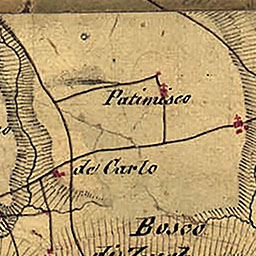 Patinisco
de Carlo
Bosco
di